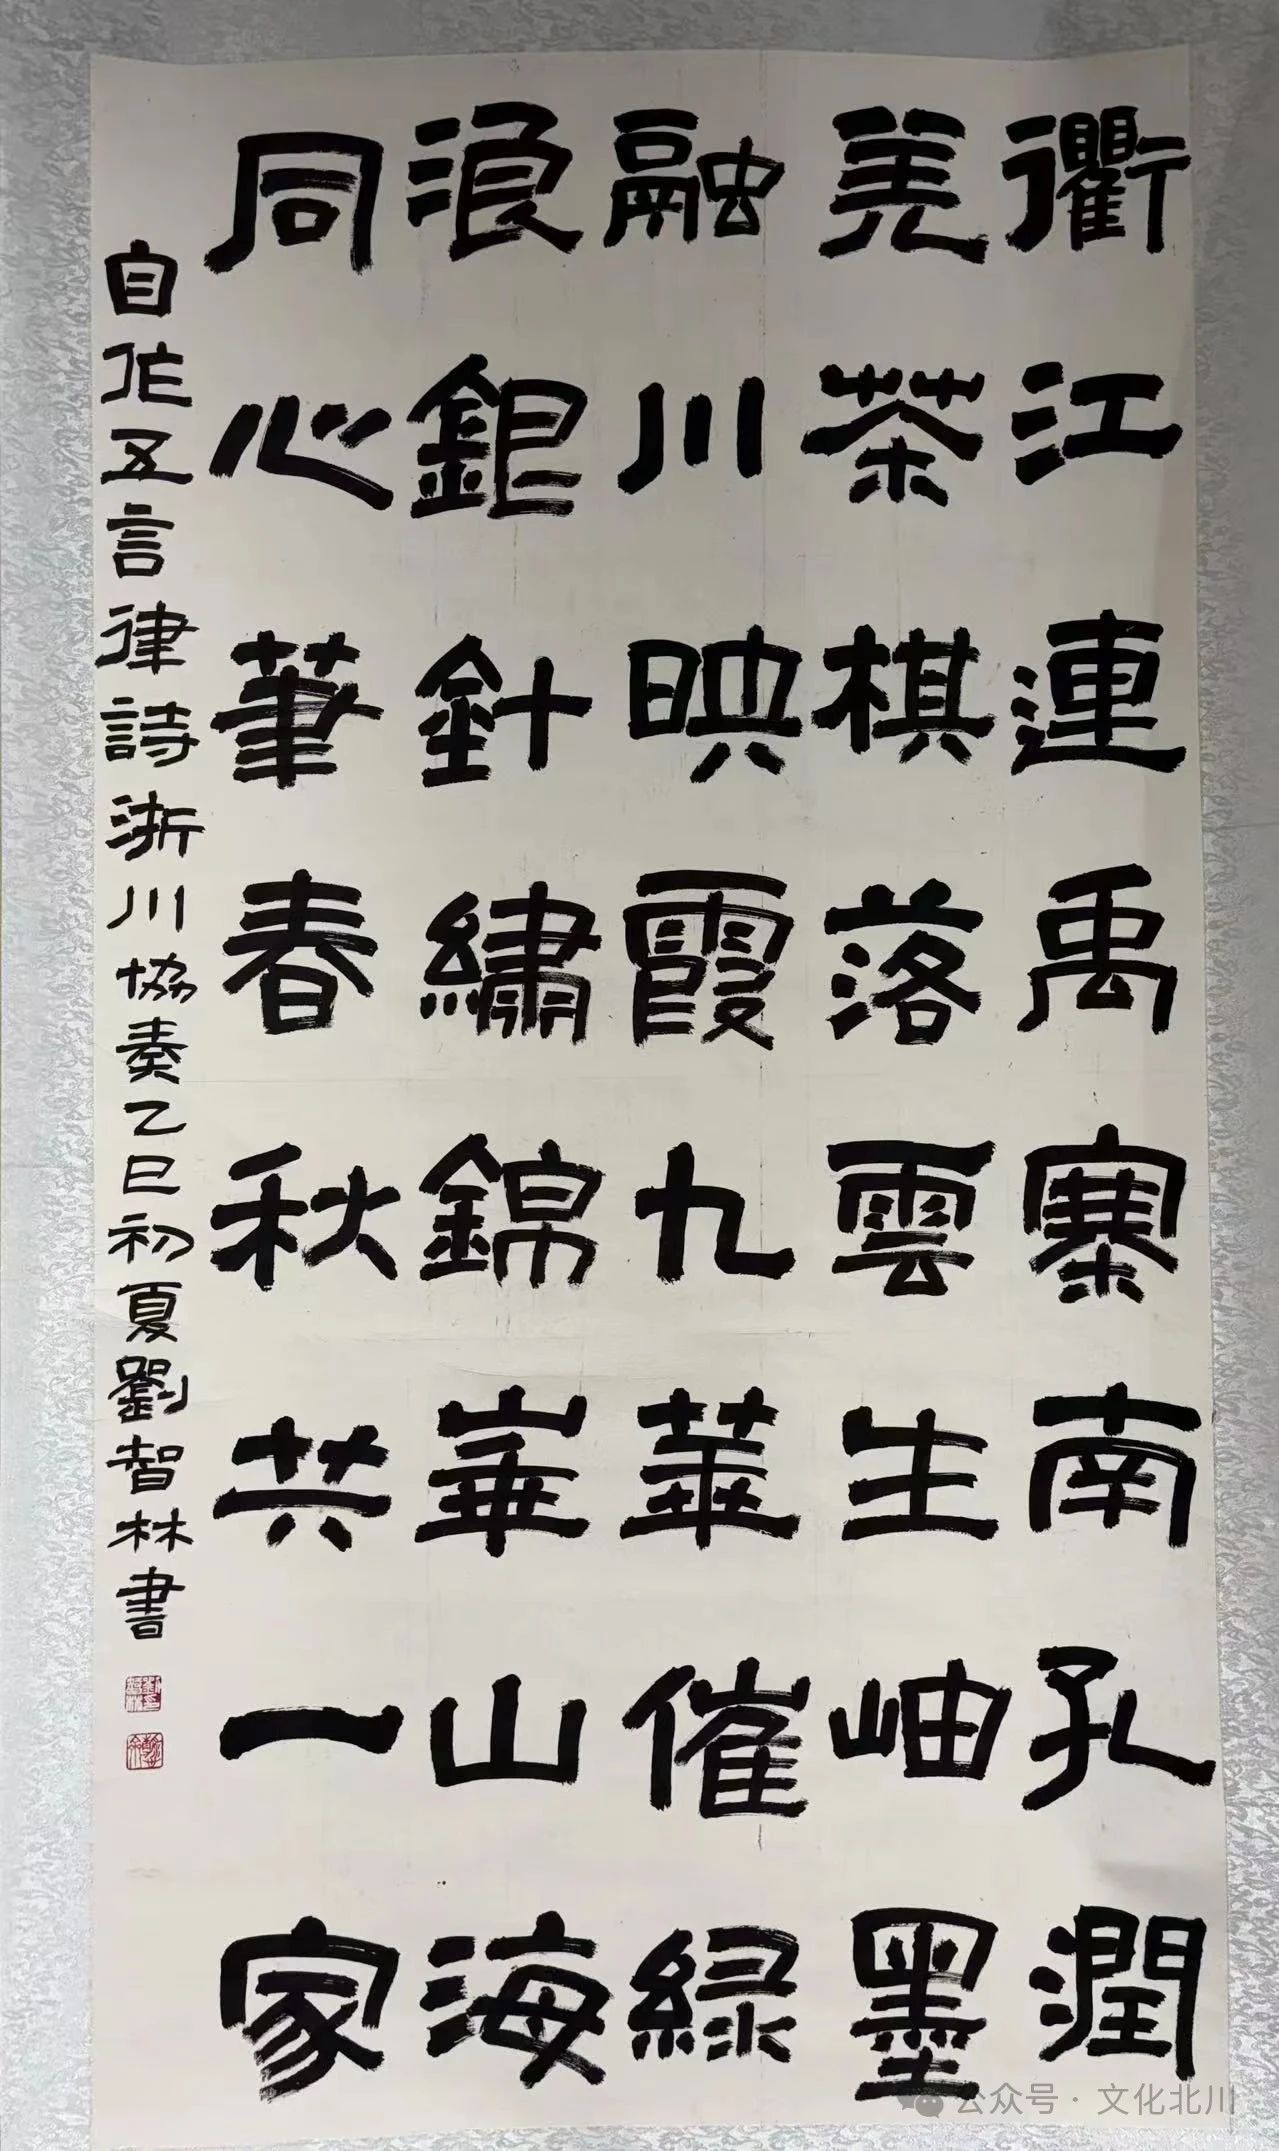 衢江連禹寨南孔潤
羌茶棋落雲生岫墨
融川映霞九華催緑
浪銀針繡錦崋山海
同心筆春秋共一家
自作五言律詩浙川協奏乙巳初夏劉智林書
公众号·文化北川